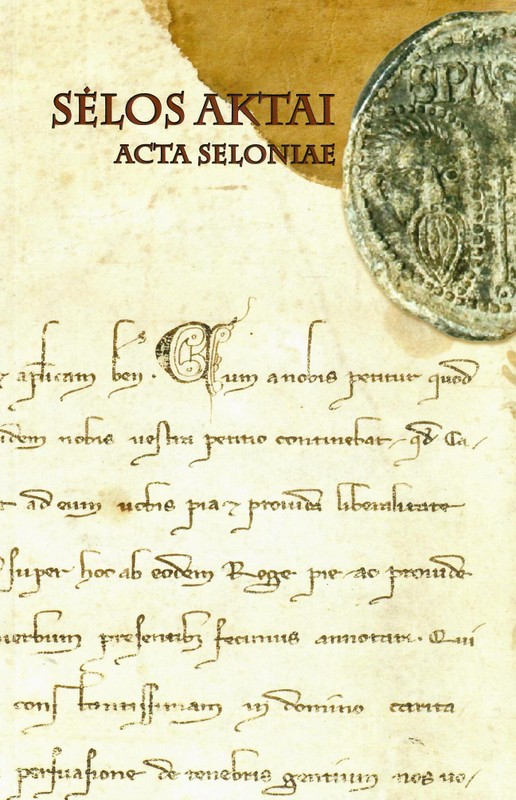 SĖLOS AKTAI
ACTA SELONIAE
SPAS
ap̄licam ben̄. Cum a nobis petitur quod
idem nobis vestra petitio continebat, qd̄ Ca-
ad eum uobis pia ⁊ prouida liberalitate
super hoc ab eodem Rege pie ac prouide
uerbum presentib; fecimus annotari. Qui
domino carita
persuasione de tenebris gentium nos uo-